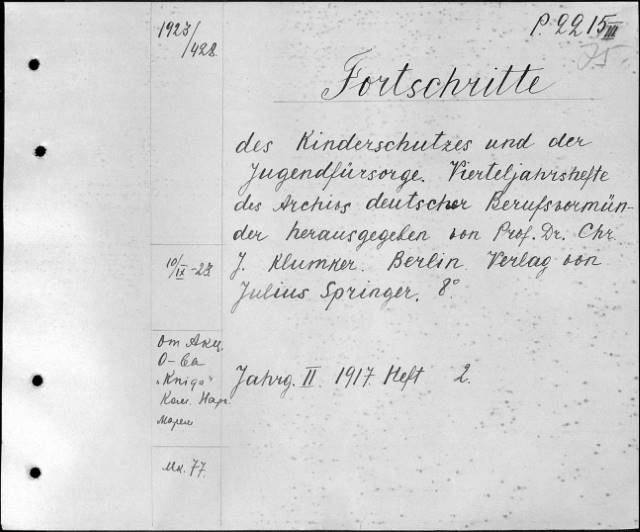 1923/428
P. 2215 III
25.
Fortschritte
des Kinderschutzes und der
Jugendfürsorge. Vierteljahrshefte
des Archivs deutscher Berufsvormün-
der herausgegeben von Prof. Dr. Chr.
J. Klumker. Berlin Verlag von
Julius Springer. 8°
10/IX-23
От Акц.
О-ва
"Книга"
Jahrg. II 1917 Heft 2.
77.